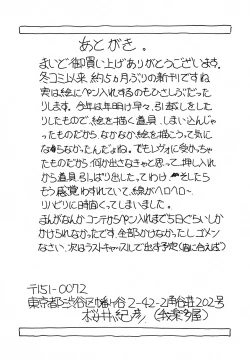 あとがき。
まいど御買い上げありがとうございます。
冬コミ以来、約5ヵ月ぶりの新刊ですね
実は絵にペン入れするのもひさしぶだった
りします。今年は年明け早々、引越しをした
りしたもので、絵を描く道具、しまい込んじゃ
ったものだから、なかなか絵を描こうって気に
ならなかったんだよね。でもレヴォに受かっちゃ
たものだから何か出さなきゃと思って、押し入れ
から道具引っぱり出したってわけ。そしたら
もう感覚わすれていて、線がヘロヘロー。
リハビリに時間くってしまいました。
まんがなんかコンテからペン入れまで5日ぐらいしか
かけられなかったです。全部かけなかったし、ゴメン
なさい、次はラストキャッスルで出す予定(間に合えば)
〒151-0072
東京都渋谷区幡ヶ谷2-42-2 202号
桜井紀彦